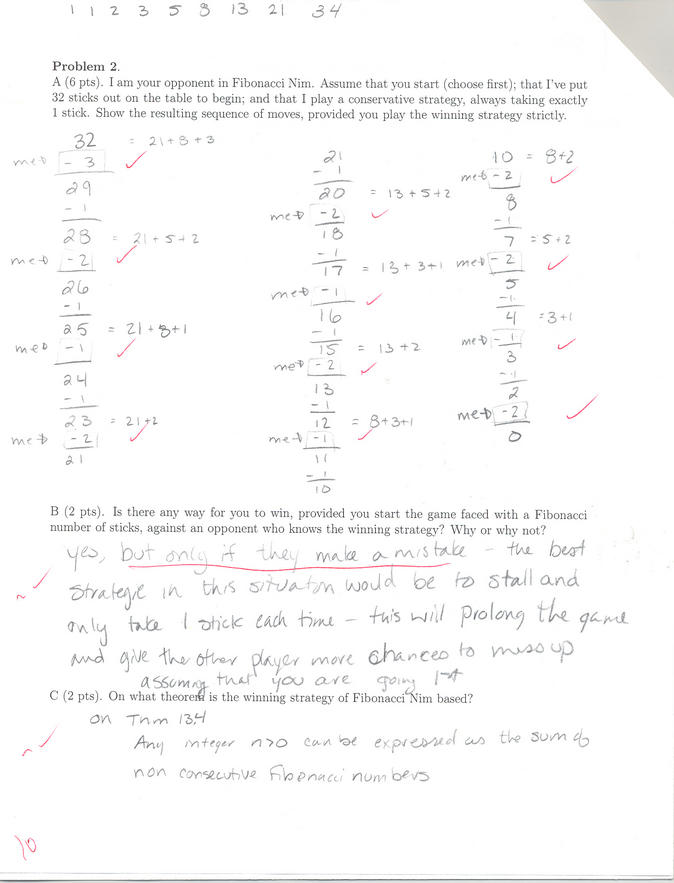 1 1 2 3 5 8 13 21 34
Problem 2.
A (6 pts). I am your opponent in Fibonacci Nim. Assume that you start (choose first); that I've put
32 sticks out on the table to begin; and that I play a conservative strategy, always taking exactly
1 stick. Show the resulting sequence of moves, provided you play the winning strategy strictly.
32 = 21+8+3
me→ - 3
29
- 1
28 = 21+5+2
me→ - 2
26
- 1
25 = 21+3+1
me→ - 1
24
- 1
23 = 21+2
me→ - 2
21
21
- 1
20 = 13+5+2
me→ - 2
18
- 1
17 = 13+3+1
me→ - 1
16
- 1
15 = 13+2
me→ - 2
13
- 1
12 = 8+3+1
me→ - 1
11
- 1
10
10 = 8+2
me→ - 2
8
- 1
7 = 5+2
me→ - 2
5
- 1
4 = 3+1
me→ - 1
3
- 1
2
me→ - 2
0
B (2 pts). Is there any way for you to win, provided you start the game faced with a Fibonacci
number of sticks, against an opponent who knows the winning strategy? Why or why not?
yes, but only if they make a mistake - the best
strategie in this situaton would be to stall and
only take 1 stick each time - this will prolong the game
and give the other player more chances to mess up
assuming that you are going 1st
C (2 pts). On what theorem is the winning strategy of Fibonacci Nim based?
on Thm 134
Any integer n>0 can be expressed as the sum of
non consecutive Fibonacci numbers
10